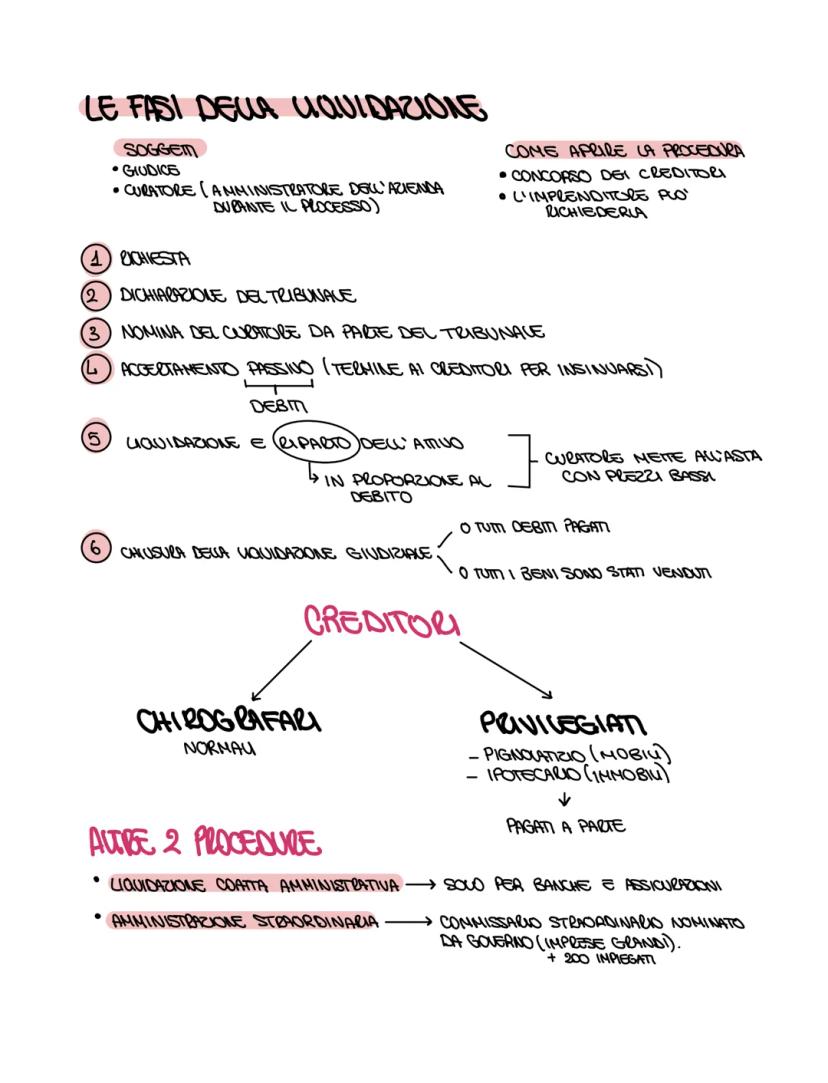 LE FASI DELLA LIQUIDAZIONE
SOGGETTI
• GIUDICE
• CURATORE (AMMINISTRATORE DELL'AZIENDA
DURANTE IL PROCESSO)
COME APRIRE LA PROCEDURA
• CONCORSO DEI CREDITORI
• L'IMPRENDITORE PUO'
RICHIEDERLA
1 RICHIESTA
2 DICHIARAZIONE DEL TRIBUNALE
3 NOMINA DEL CURATORE DA PARTE DEL TRIBUNALE
4 ACCERTAMENTO PASSIVO (TERMINE AI CREDITORI PER INSINUARSI)
DEBITI
5 LIQUIDAZIONE E RIPARTO DELL'ATTIVO
IN PROPORZIONE AL
DEBITO
CURATORE METTE ALL'ASTA
CON PREZZI BASSI
6 CHIUSURA DELLA LIQUIDAZIONE GIUDIZIALE
O TUTTI DEBITI PAGATI
O TUTTI I BENI SONO STATI VENDUTI
CREDITORI
CHIROGRAFARI
NORMALI
PRIVILEGIATI
- PIGNOLATIZIO (MOBILI)
- IPOTECARIO (IMMOBILI)
PAGATI A PARTE
ALTRE 2 PROCEDURE
• LIQUIDAZIONE COATTA AMMINISTRATIVA → SOLO PER BANCHE E ASSICURAZIONI
• AMMINISTRAZIONE STRAORDINARIA → COMMISSARIO STRAORDINARIO NOMINATO
DA GOVERNO (IMPRESE GRANDI).
+ 200 IMPIEGATI